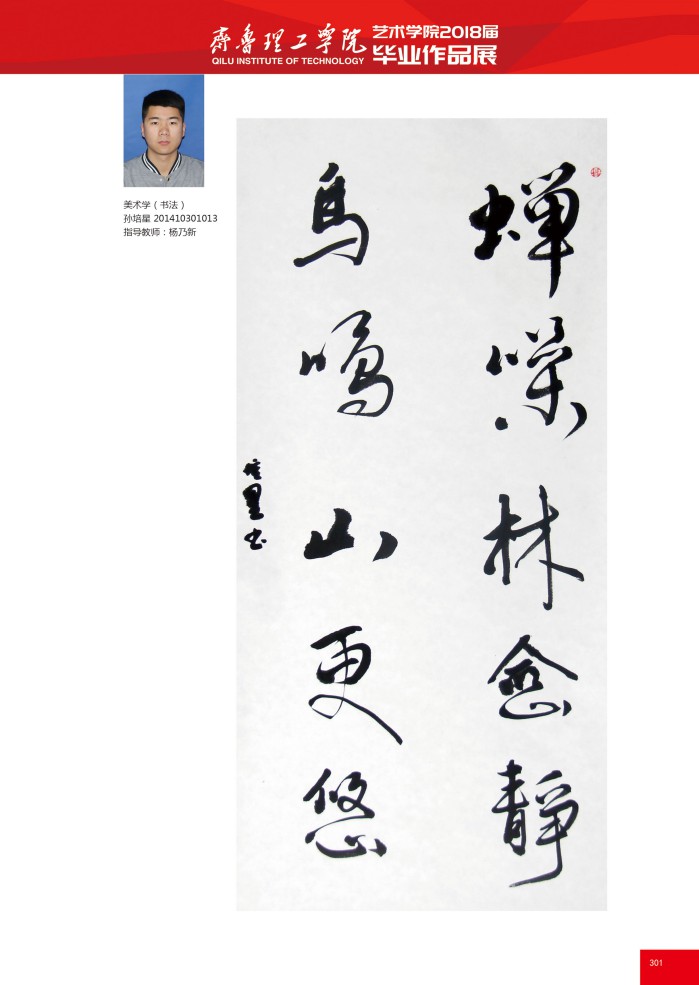 齐鲁理工学院
QILU INSTITUTE OF TECHNOLOGY
艺术学院2018届
毕业作品展
美术学（书法）
孙培星 201410301013
指导教师：杨乃新
蝉噪林愈静
鸟鸣山更悠
培星书
301